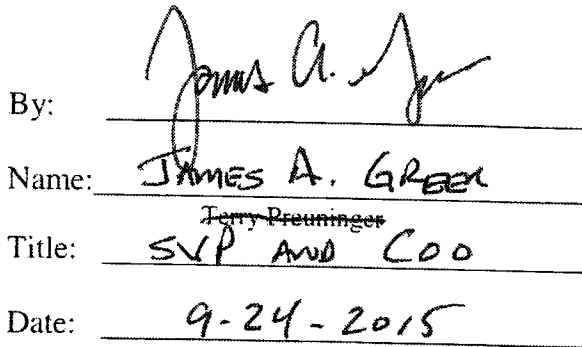 By: James A. Greer
Name: JAMES A. GREER
Terry Preuninger
Title: SVP AND COO
Date: 9-24-2015